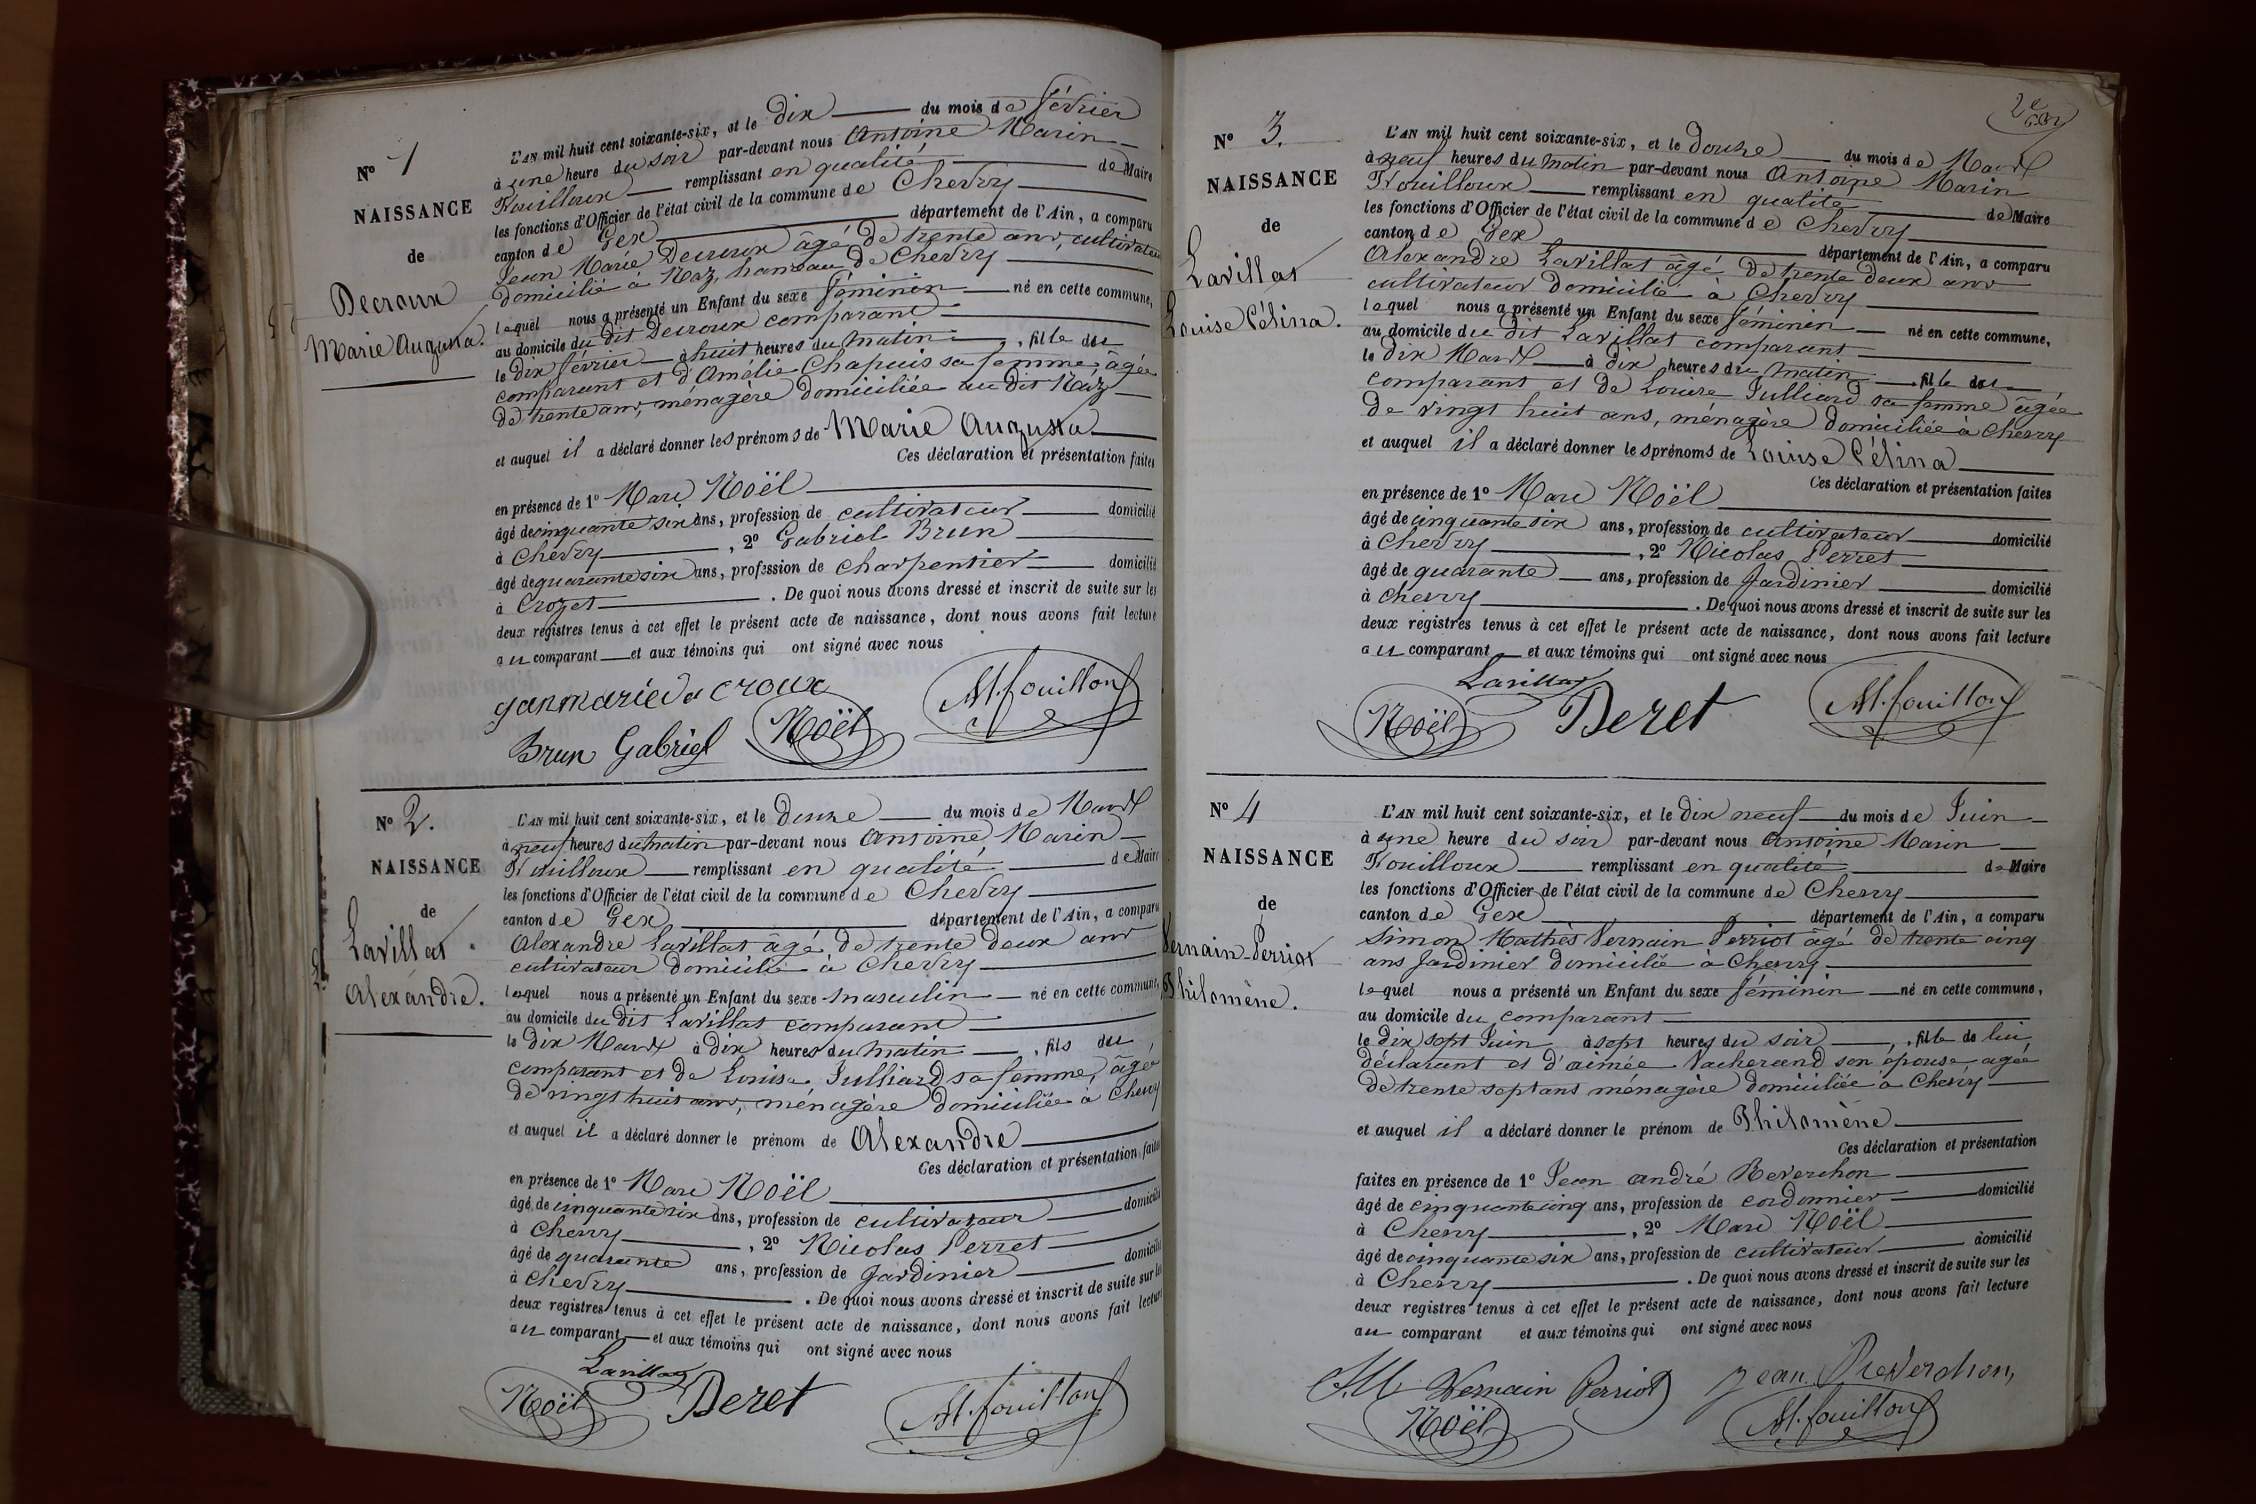 N° 1
NAISSANCE
de
Decroux
Marie Augusta.
L'AN mil huit cent soixante-six, et le dix du mois de février
à une heure du soir par-devant nous Antoine Marin
Fouilloux remplissant en qualité de Maire
les fonctions d'Officier de l'état civil de la commune de Chevry
canton de Gex département de l'Ain, a comparu
Jean Marie Decroux âgé de trente ans, cultivateur
domicilié à Naz, hameau de Chevry
lequel nous a présenté un Enfant du sexe féminin né en cette commune,
au domicile du dit Decroux comparant
le dix février à huit heures du matin, fille du
comparant et d'Amélie Chapuis sa femme, âgée
de trente ans, ménagère domiciliée au dit Naz
et auquel il a déclaré donner les prénoms de Marie Augusta
Ces déclaration et présentation faites
en présence de 1° Marc Noël
âgé de cinquante six ans, profession de cultivateur domicilié
à Chevry, 2° Gabriel Brun
âgé de quarante six ans, profession de charpentier domicilié
à Crozet. De quoi nous avons dressé et inscrit de suite sur les
deux registres tenus à cet effet le présent acte de naissance, dont nous avons fait lecture
au comparant et aux témoins qui ont signé avec nous
janmarie de croux
AM. fouilloux
Brun Gabriel Noël
N° 2.
NAISSANCE
de
Lavillat
Alexandre.
L'AN mil huit cent soixante-six, et le douze du mois de Mars
à neuf heures du matin par-devant nous Antoine Marin
Fouilloux remplissant en qualité de Maire
les fonctions d'Officier de l'état civil de la commune de Chevry
canton de Gex département de l'Ain, a comparu
Alexandre Lavillat âgé de trente deux ans
cultivateur domicilié à Chevry
lequel nous a présenté un Enfant du sexe masculin né en cette commune,
au domicile du dit Lavillat comparant
le dix Mars à dix heures du matin, fils du
comparant et de Louise Julliard sa femme, âgée
de vingt huit ans, ménagère domiciliée à Chevry
et auquel il a déclaré donner le prénom de Alexandre
Ces déclaration et présentation faites
en présence de 1° Marc Noël
âgé de cinquante six ans, profession de cultivateur domicilié
à Chevry, 2° Nicolas Perret
âgé de quarante ans, profession de Jardinier domicilié
à Chevry. De quoi nous avons dressé et inscrit de suite sur les
deux registres tenus à cet effet le présent acte de naissance, dont nous avons fait lecture
au comparant et aux témoins qui ont signé avec nous
Lavillat
Noël Peret AM. fouilloux
N° 3.
NAISSANCE
de
Lavillat
Louise Célina.
L'AN mil huit cent soixante-six, et le douze du mois de Mars
à neuf heures du matin par-devant nous Antoine Marin
Fouilloux remplissant en qualité de Maire
les fonctions d'Officier de l'état civil de la commune de Chevry
canton de Gex département de l'Ain, a comparu
Alexandre Lavillat âgé de trente deux ans
cultivateur domicilié à Chevry
lequel nous a présenté un Enfant du sexe féminin né en cette commune,
au domicile du dit Lavillat comparant
le dix Mars à dix heures du matin, fille du
comparant et de Louise Julliard sa femme âgée
de vingt huit ans, ménagère domiciliée à Chevry
et auquel il a déclaré donner les prénoms de Louise Célina
Ces déclaration et présentation faites
en présence de 1° Marc Noël
âgé de cinquante six ans, profession de cultivateur domicilié
à Chevry, 2° Nicolas Perret
âgé de quarante ans, profession de Jardinier domicilié
à Chevry. De quoi nous avons dressé et inscrit de suite sur les
deux registres tenus à cet effet le présent acte de naissance, dont nous avons fait lecture
au comparant et aux témoins qui ont signé avec nous
Lavillat
Noël Peret AM. fouilloux
N° 4
NAISSANCE
de
Vernain-Perriot
Philomène.
L'AN mil huit cent soixante-six, et le dix neuf du mois de Juin
à une heure du soir par-devant nous Antoine Marin
Fouilloux remplissant en qualité de Maire
les fonctions d'Officier de l'état civil de la commune de Chevry
canton de Gex département de l'Ain, a comparu
Simon Mathès Vernain Perriot âgé de trente cinq
ans Jardinier domicilié à Chevry
lequel nous a présenté un Enfant du sexe féminin né en cette commune,
au domicile du comparant
le dix sept Juin à sept heures du soir, fille de lui
déclarant et d'aimée Vacherand son épouse agée
de trente sept ans ménagère domiciliée à Chevry
et auquel il a déclaré donner le prénom de Philomène
Ces déclaration et présentation
faites en présence de 1° Jean andré Reverchon
âgé de cinquante cinq ans, profession de cordonnier domicilié
à Chevry, 2° Marc Noël
âgé de cinquante six ans, profession de cultivateur domicilié
à Chevry. De quoi nous avons dressé et inscrit de suite sur les
deux registres tenus à cet effet le présent acte de naissance, dont nous avons fait lecture
au comparant et aux témoins qui ont signé avec nous
S.M. Vernain Perriot jean Reverchon,
Noël AM. fouilloux